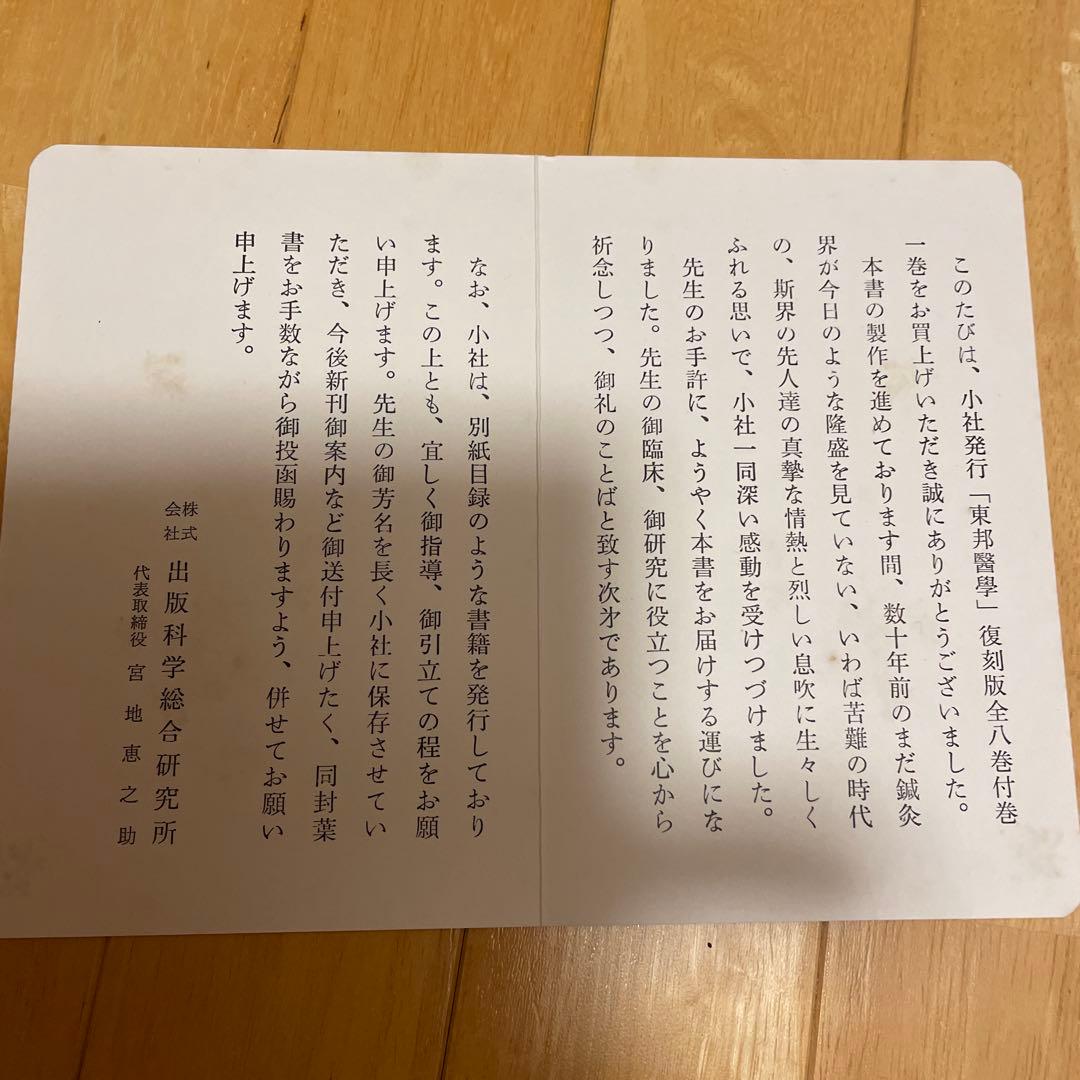 このたびは、小社発行「東邦醫學」復刻版全八巻付巻
一巻をお買上げいただき誠にありがとうございました。
本書の製作を進めております間、数十年前のまだ鍼灸
界が今日のような隆盛を見ていない、いわば苦難の時代
の、斯界の先人達の真摯な情熱と烈しい息吹に生々しく
ふれる思いで、小社一同深い感動を受けつづけました。
先生のお手許に、ようやく本書をお届けする運びにな
りました。先生の御臨床、御研究に役立つことを心から
祈念しつつ、御礼のことばと致す次㐧であります。
なお、小社は、別紙目録のような書籍を発行しており
ます。この上とも、宜しく御指導、御引立ての程をお願
い申上げます。先生の御芳名を長く小社に保存させてい
ただき、今後新刊御案内など御送付申上げたく、同封葉
書をお手数ながら御投函賜わりますよう、併せてお願い
申上げます。
株式会社 出版科学総合研究所
代表取締役 宮地恵之助